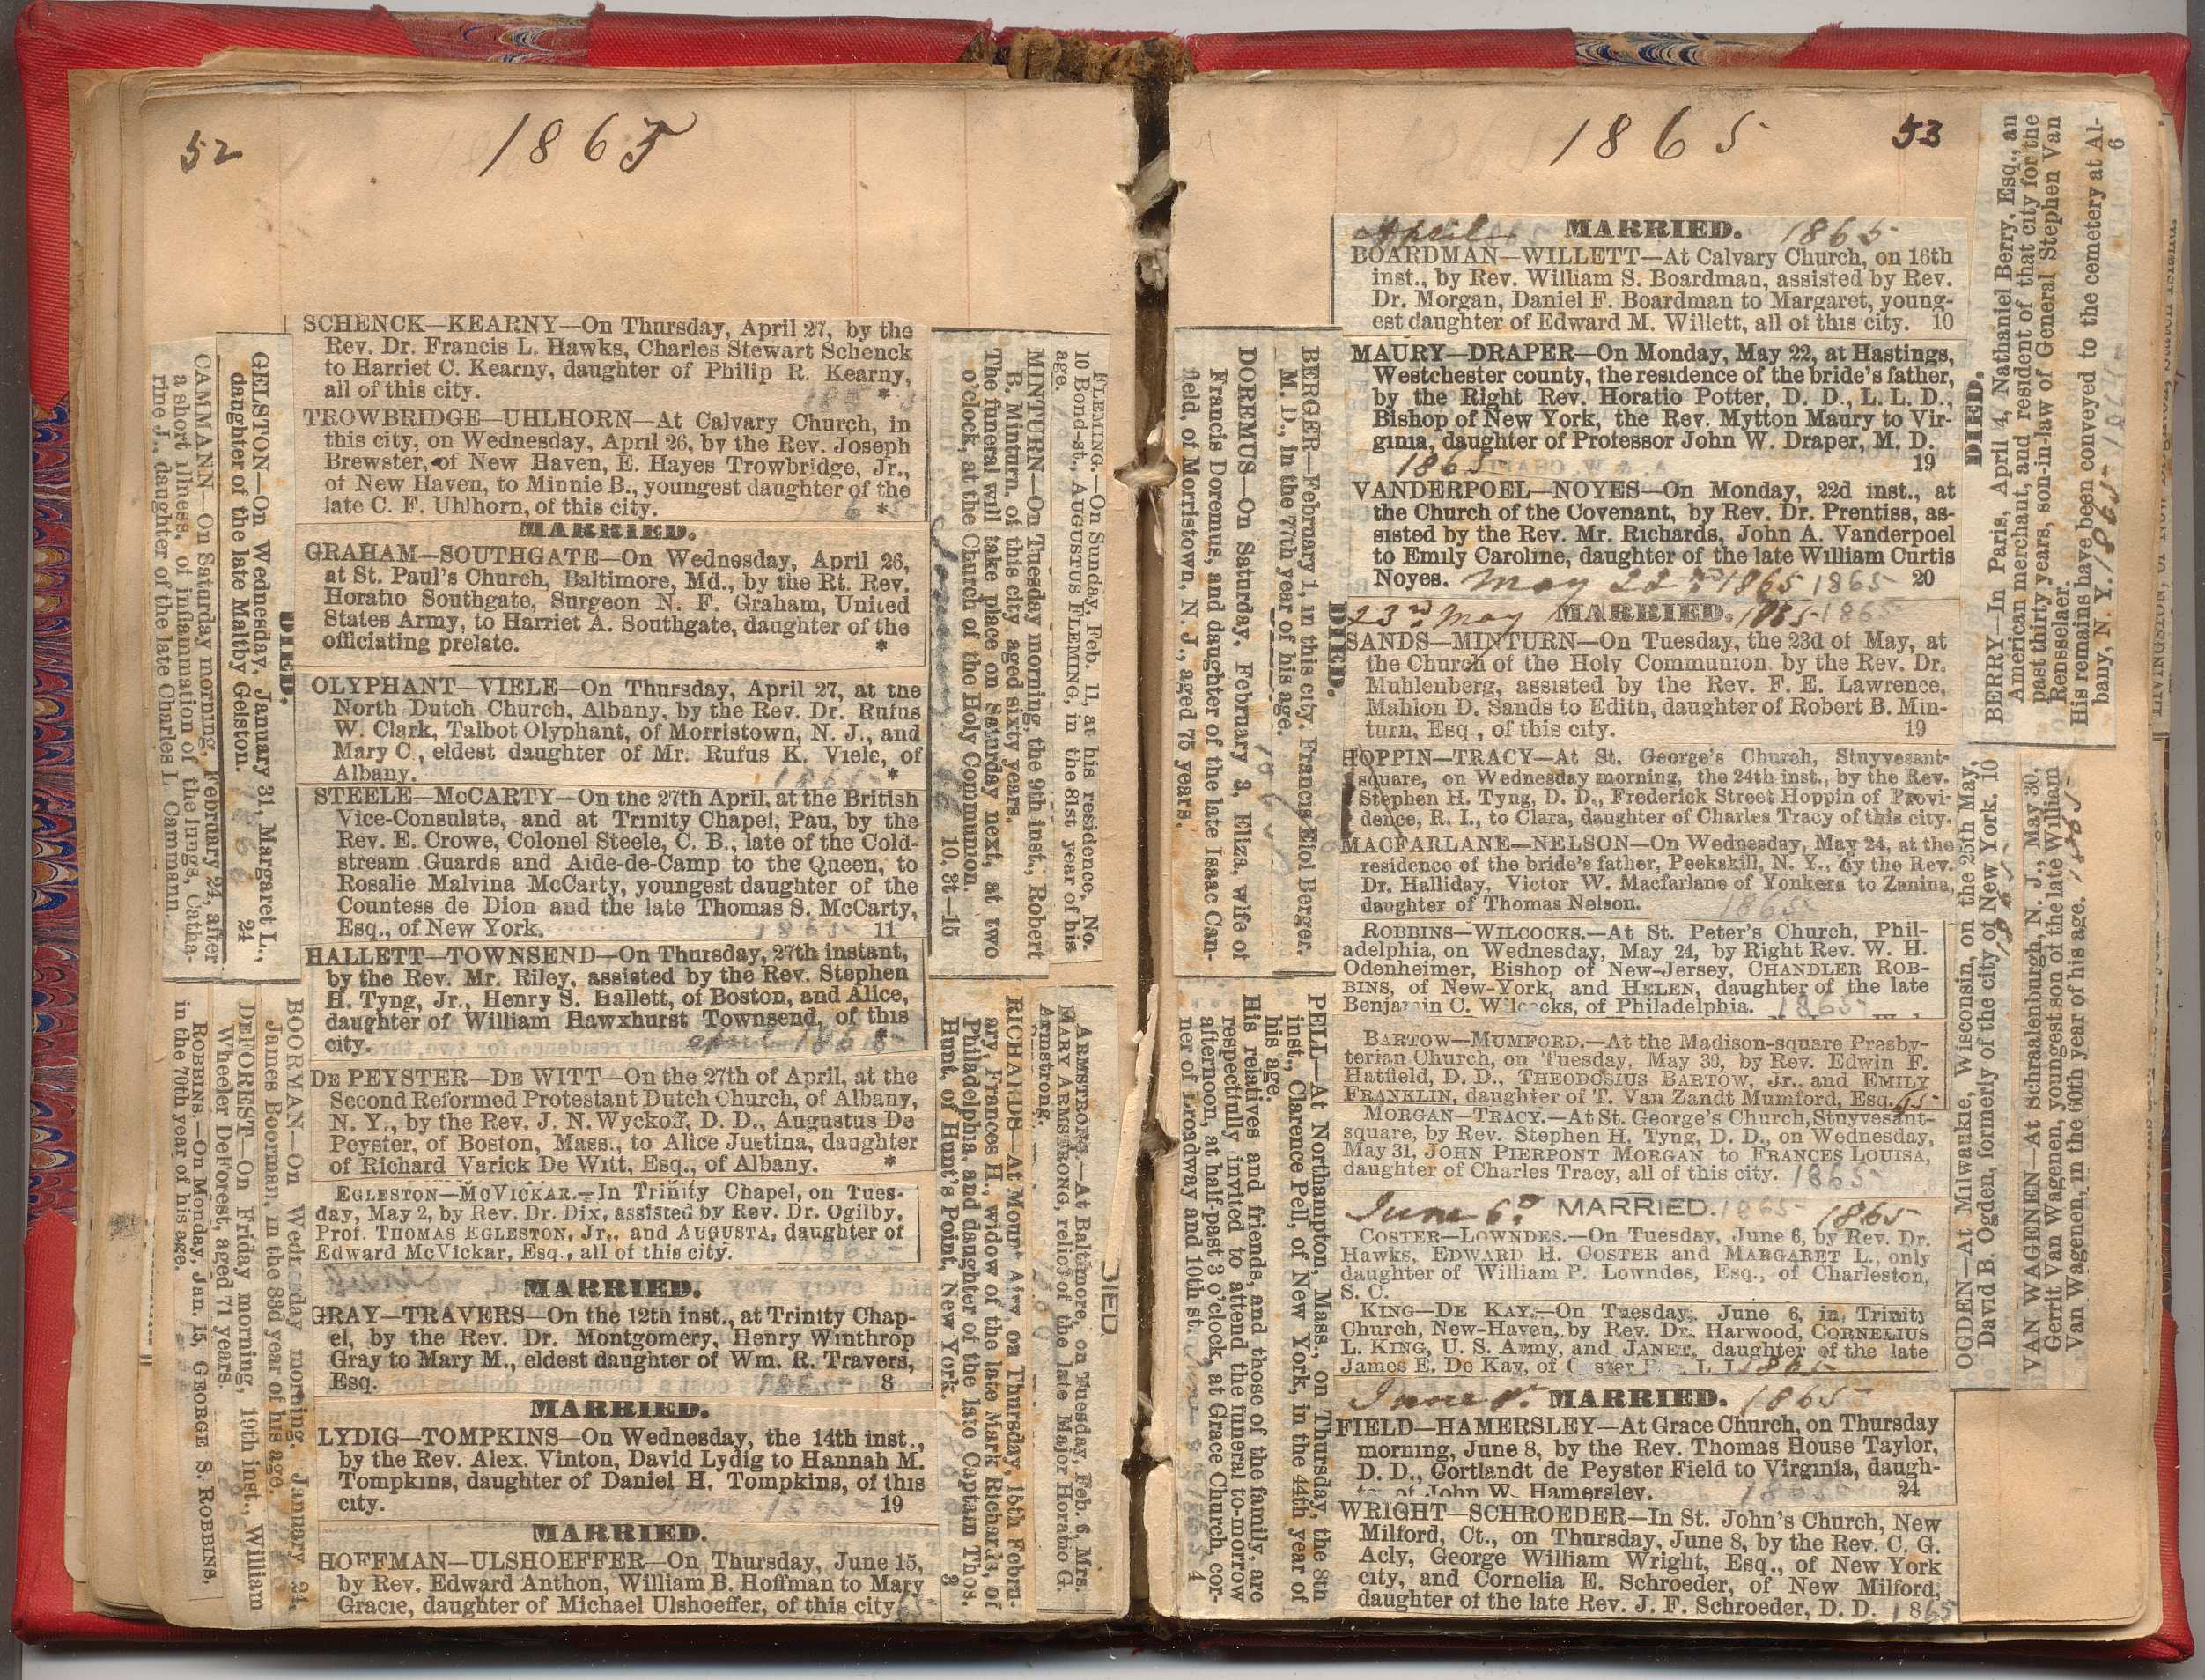 52
1865
SCHENCK—KEARNY—On Thursday, April 27, by the
Rev. Dr. Francis L. Hawks, Charles Stewart Schenck
to Harriet C. Kearny, daughter of Philip R. Kearny,
all of this city. *
TROWBRIDGE—UHLHORN—At Calvary Church, in
this city, on Wednesday, April 26, by the Rev. Joseph
Brewster, of New Haven, E. Hayes Trowbridge, Jr.,
of New Haven, to Minnie B., youngest daughter of the
late C. F. Uhlhorn, of this city. *
MARRIED.
GRAHAM—SOUTHGATE—On Wednesday, April 26,
at St. Paul's Church, Baltimore, Md., by the Rt. Rev.
Horatio Southgate, Surgeon N. F. Graham, United
States Army, to Harriet A. Southgate, daughter of the
officiating prelate. *
OLYPHANT—VIELE—On Thursday, April 27, at the
North Dutch Church, Albany, by the Rev. Dr. Rufus
W. Clark, Talbot Olyphant, of Morristown, N. J., and
Mary C, eldest daughter of Mr. Rufus K. Viele, of
Albany. 1865 *
STEELE—McCARTY—On the 27th April, at the British
Vice-Consulate, and at Trinity Chapel, Pau, by the
Rev. E. Crowe, Colonel Steele, C. B., late of the Cold-
stream Guards and Aide-de-Camp to the Queen, to
Rosalie Malvina McCarty, youngest daughter of the
Countess de Dion and the late Thomas S. McCarty,
Esq., of New York. 1865 11
HALLETT—TOWNSEND—On Thursday, 27th instant,
by the Rev. Mr. Riley, assisted by the Rev. Stephen
H. Tyng, Jr., Henry S. Hallett, of Boston, and Alice,
daughter of William Hawxhurst Townsend, of this
city. april 1865
DE PEYSTER—DE WITT—On the 27th of April, at the
Second Reformed Protestant Dutch Church, of Albany,
N. Y., by the Rev. J. N. Wyckoff, D. D., Augustus De
Peyster, of Boston, Mass., to Alice Justina, daughter
of Richard Varick De Witt, Esq., of Albany. *
EGLESTON—MCVICKAR.—In Trinity Chapel, on Tues-
day, May 2, by Rev. Dr. Dix, assisted by Rev. Dr. Ogilby,
Prof. THOMAS EGLESTON, Jr., and AUGUSTA, daughter of
Edward McVickar, Esq., all of this city.
MARRIED.
GRAY—TRAVERS—On the 12th inst., at Trinity Chap-
el, by the Rev. Dr. Montgomery, Henry Winthrop
Gray to Mary M., eldest daughter of Wm. R. Travers,
Esq. 1865 8
MARRIED.
LYDIG—TOMPKINS—On Wednesday, the 14th inst.,
by the Rev. Alex. Vinton, David Lydig to Hannah M.
Tompkins, daughter of Daniel H. Tompkins, of this
city. June 1865 19
MARRIED.
HOFFMAN—ULSHOEFFER—On Thursday, June 15,
by Rev. Edward Anthon, William B. Hoffman to Mary
Gracie, daughter of Michael Ulshoeffer, of this city.
DIED.
GELSTON—On Wednesday, January 31, Margaret L.,
daughter of the late Maltby Gelston. 24
CAMMANN—On Saturday morning, February 24, after
a short illness, of inflammation of the lungs, Catha-
rine J., daughter of the late Charles L Cammann.
BOORMAN—On Wednesday morning, January 24,
James Boorman, in the 83d year of his age.
DEFOREST—On Friday morning, 19th inst., William
Wheeler DeForest, aged 71 years.
ROBBINS.—On Monday, Jan. 15, GEORGE S. ROBBINS,
in the 70th year of his age.
FLEMING.—On Sunday, Feb. 11, at his residence, No.
10 Bond-st., AUGUSTUS FLEMING, in the 81st year of his
age.
MINTURN—On Tuesday morning, the 9th inst., Robert
B. Minturn, of this city, aged sixty years.
The funeral will take place on Saturday next, at two
o'clock, at the Church of the Holy Communion.
10, 3t—15
DIED.
ARMSTRONG.—At Baltimore, on Tuesday, Feb. 6, Mrs.
MARY ARMSTRONG, relict of the late Major Horatio G.
Armstrong.
RICHARDS—At Mount Airy, on Thursday, 15th Febru-
ary, Frances H., widow of the late Mark Richards, of
Philadelphia, and daughter of the late Captain Thos.
Hunt, of Hunt's Point, New York. 3
1865
53
April MARRIED. 1865
BOARDMAN—WILLETT—At Calvary Church, on 16th
inst., by Rev. William S. Boardman, assisted by Rev.
Dr. Morgan, Daniel F. Boardman to Margaret, young-
est daughter of Edward M. Willett, all of this city. 10
MAURY—DRAPER—On Monday, May 22, at Hastings,
Westchester county, the residence of the bride's father,
by the Right Rev. Horatio Potter, D. D., L. L. D.,
Bishop of New York, the Rev. Mytton Maury to Vir-
ginia, daughter of Professor John W. Draper, M. D.
1865 19
VANDERPOEL—NOYES—On Monday, 22d inst., at
the Church of the Covenant, by Rev. Dr. Prentiss, as-
sisted by the Rev. Mr. Richards, John A. Vanderpoel
to Emily Caroline, daughter of the late William Curtis
Noyes. May 22nd 1865 1865 20
23rd May MARRIED. 1865 1865
SANDS—MINTURN—On Tuesday, the 23d of May, at
the Church of the Holy Communion, by the Rev. Dr.
Muhlenberg, assisted by the Rev. F. E. Lawrence,
Mahlon D. Sands to Edith, daughter of Robert B. Min-
turn, Esq., of this city. 19
HOPPIN—TRACY—At St. George's Church, Stuyvesant-
square, on Wednesday morning, the 24th inst., by the Rev.
Stephen H. Tyng, D. D., Frederick Street Hoppin of Provi-
dence, R. I., to Clara, daughter of Charles Tracy of this city.
MACFARLANE—NELSON—On Wednesday, May 24, at the
residence of the bride's father, Peekskill, N. Y., by the Rev.
Dr. Halliday, Victor W. Macfarlane of Yonkers to Zanina,
daughter of Thomas Nelson. 1865
ROBBINS—WILCOCKS.—At St. Peter's Church, Phil-
adelphia, on Wednesday, May 24, by Right Rev. W. H.
Odenheimer, Bishop of New-Jersey, CHANDLER ROB-
BINS, of New-York, and HELEN, daughter of the late
Benjamin C. Wilcocks, of Philadelphia. 1865
BARTOW—MUMFORD.—At the Madison-square Presby-
terian Church, on Tuesday, May 30, by Rev. Edwin F.
Hatfield, D. D., THEODOSIUS BARTOW, Jr., and EMILY
FRANKLIN, daughter of T. Van Zandt Mumford, Esq. 65
MORGAN—TRACY.—At St. George's Church, Stuyvesant-
square, by Rev. Stephen H. Tyng, D. D., on Wednesday,
May 31, JOHN PIERPONT MORGAN to FRANCES LOUISA,
daughter of Charles Tracy, all of this city. 1865
June 6 MARRIED. 1865 1865
COSTER—LOWNDES.—On Tuesday, June 6, by Rev. Dr.
Hawks, EDWARD H. COSTER and MARGARET L., only
daughter of William P. Lowndes, Esq., of Charleston,
S. C.
KING—DE KAY.—On Tuesday, June 6, in Trinity
Church, New-Haven, by Rev. Dr. Harwood, CORNELIUS
L. KING, U. S. Army, and JANET, daughter of the late
James E. De Kay, of Oyster L. I. 1865
June MARRIED. 1865
FIELD—HAMERSLEY—At Grace Church, on Thursday
morning, June 8, by the Rev. Thomas House Taylor,
D. D., Cortlandt de Peyster Field to Virginia, daugh-
ter of John W. Hamersley. 1865 24
WRIGHT—SCHROEDER—In St. John's Church, New
Milford, Ct., on Thursday, June 8, by the Rev. C. G.
Acly, George William Wright, Esq., of New York
city, and Cornelia E. Schroeder, of New Milford,
daughter of the late Rev. J. F. Schroeder, D. D. 1865
DIED.
BERGER—February 1, in this city, Francis Eliol Berger.
M. D., in the 77th year of his age.
DOREMUS—On Saturday, February 3, Eliza, wife of
Francis Doremus, and daughter of the late Isaac Can-
field, of Morristown, N. J., aged 75 years.
PELL—At Northampton, Mass., on Thursday, the 8th
inst., Clarence Pell, of New York, in the 44th year of
his age.
His relatives and friends, and those of the family, are
respectfully invited to attend the funeral to-morrow
afternoon, at half-past 3 o'clock, at Grace Church, cor-
ner of Broadway and 10th st. June 8 1865 4
DIED.
BERRY—In Paris, April 4, Nathaniel Berry, Esq., an
American merchant, and resident of that city for the
past thirty years, son-in-law of General Stephen Van
Rensselaer.
His remains have been conveyed to the cemetery at Al-
bany, N. Y. 1865 6
OGDEN—At Milwaukie, Wisconsin, on the 25th May,
David B. Ogden, formerly of the city of New York. 10
VAN WAGENEN—At Schraalenburgh, N. J., May 30,
Gerrit Van Wagenen, youngest son of the late William
Van Wagenen, in the 60th year of his age. 1865